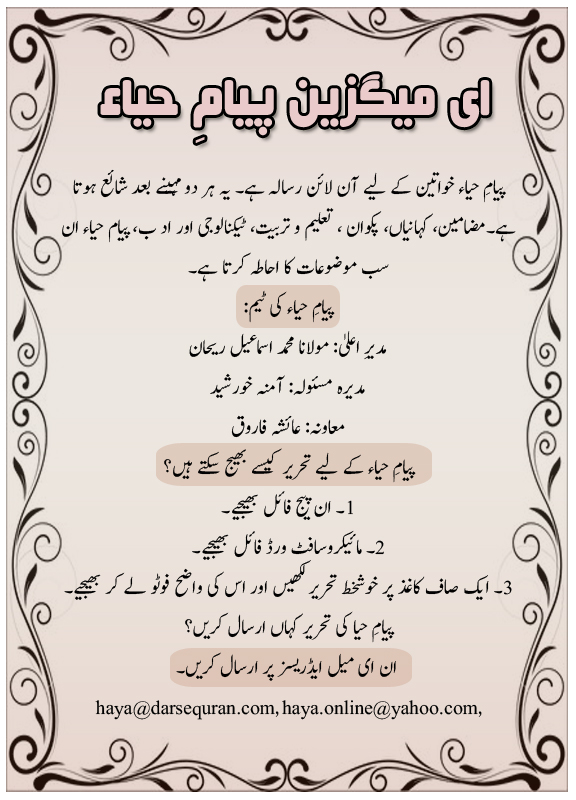 ای میگزین پیامِ حیاء
پیامِ حیاء خواتین کے لیے آن لائن رسالہ ہے۔ یہ ہر دو مہینے بعد شائع ہوتا
ہے۔ مضامین، کہانیاں، پکوان ، تعلیم و تربیت، ٹیکنالوجی اور اد ب، پیام حیاء ان
سب موضوعات کا احاطہ کرتا ہے۔
پیامِ حیاء کی ٹیم:
مدیرِ اعلیٰ: مولانا محمد اسماعیل ریحان
مدیرہ مسئولہ: آمنہ خورشید
معاونہ: عائشہ فاروق
پیامِ حیاء کے لیے تحریر کیسے بھیج سکتے ہیں؟
1۔ ان پیج فائل بھیجیے۔
2۔ مائیکروسافٹ ورڈ فائل بھیجیے۔
3۔ ایک صاف کاغذ پر خوشخط تحریر لکھیں اور اس کی واضح فوٹو لے کر بھیجیے۔
پیامِ حیا کی تحریر کہاں ارسال کریں؟
ان ای میل ایڈریسز پر ارسال کریں۔
haya@darsequran.com, haya.online@yahoo.com,